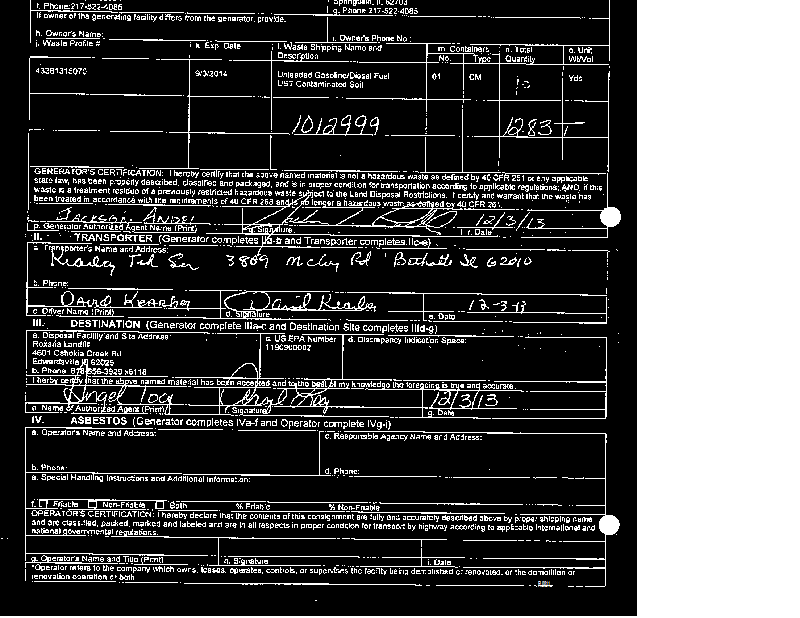 f. Phone: 217-522-4085
Springfield, IL 62703
g. Phone 217-522-4085
If owner of the generating facility differs from the generator, provide.
h. Owner's Name:
i. Owner's Phone No.:
j. Waste Profile #
k. Exp. Date
l. Waste Shipping Name and Description
m. Containers
No. Type
n. Total Quantity
o. Unit Wt/Vol
9/3/2014
Unleaded Gasoline/Diesel Fuel
UST Contaminated Soil
01
CM
10
Yds
1012999
12.83 T
GENERATOR'S CERTIFICATION: I hereby certify that the above named material is not a hazardous waste as defined by 40 CFR 261 or any applicable
state law, has been properly described, classified and packaged, and is in proper condition for transportation according to applicable regulations; AND, if this
waste is a treatment residue of a previously restricted hazardous waste subject to the Land Disposal Restrictions, I certify and warrant that the waste has
been treated in accordance with the requirements of 40 CFR 268 and is no longer a hazardous waste as defined by 40 CFR 261.
12/3/13
p. Generator Authorized Agent Name (Print)
q. Signature
r. Date
II. TRANSPORTER (Generator completes IIa-b and Transporter completes IIc-e)
a. Transporter's Name and Address:
3869
Rd
62010
b. Phone:
David
David
12-3-13
c. Driver Name (Print)
d. Signature
e. Date
III. DESTINATION (Generator complete IIIa-c and Destination Site completes IIId-g)
a. Disposal Facility and Site Address
c. US EPA Number
d. Discrepancy Indication Space:
Roxana Landfill
1190900002
4601 Cahokia Creek Rd
Edwardsville Il 62025
b. Phone 618-656-3929 x6118
I hereby certify that the above named material has been accepted and to the best of my knowledge the foregoing is true and accurate.
12/3/13
e. Name of Authorized Agent (Print)
f. Signature
g. Date
IV. ASBESTOS (Generator completes IVa-f and Operator complete IVg-i)
a. Operator's Name and Address:
c. Responsible Agency Name and Address:
b. Phone:
d. Phone:
e. Special Handling Instructions and Additional Information:
f. Friable Non-Friable Both % Friable % Non-Friable
OPERATOR'S CERTIFICATION: I hereby declare that the contents of this consignment are fully and accurately described above by proper shipping name
and are classified, packed, marked and labeled and are in all respects in proper condition for transport by highway according to applicable international and
national governmental regulations.
g. Operator's Name and Title (Print)
h. Signature
i. Date
*Operator refers to the company which owns, leases, operates, controls, or supervises the facility being demolished or renovated, or the demolition or
renovation operation or both